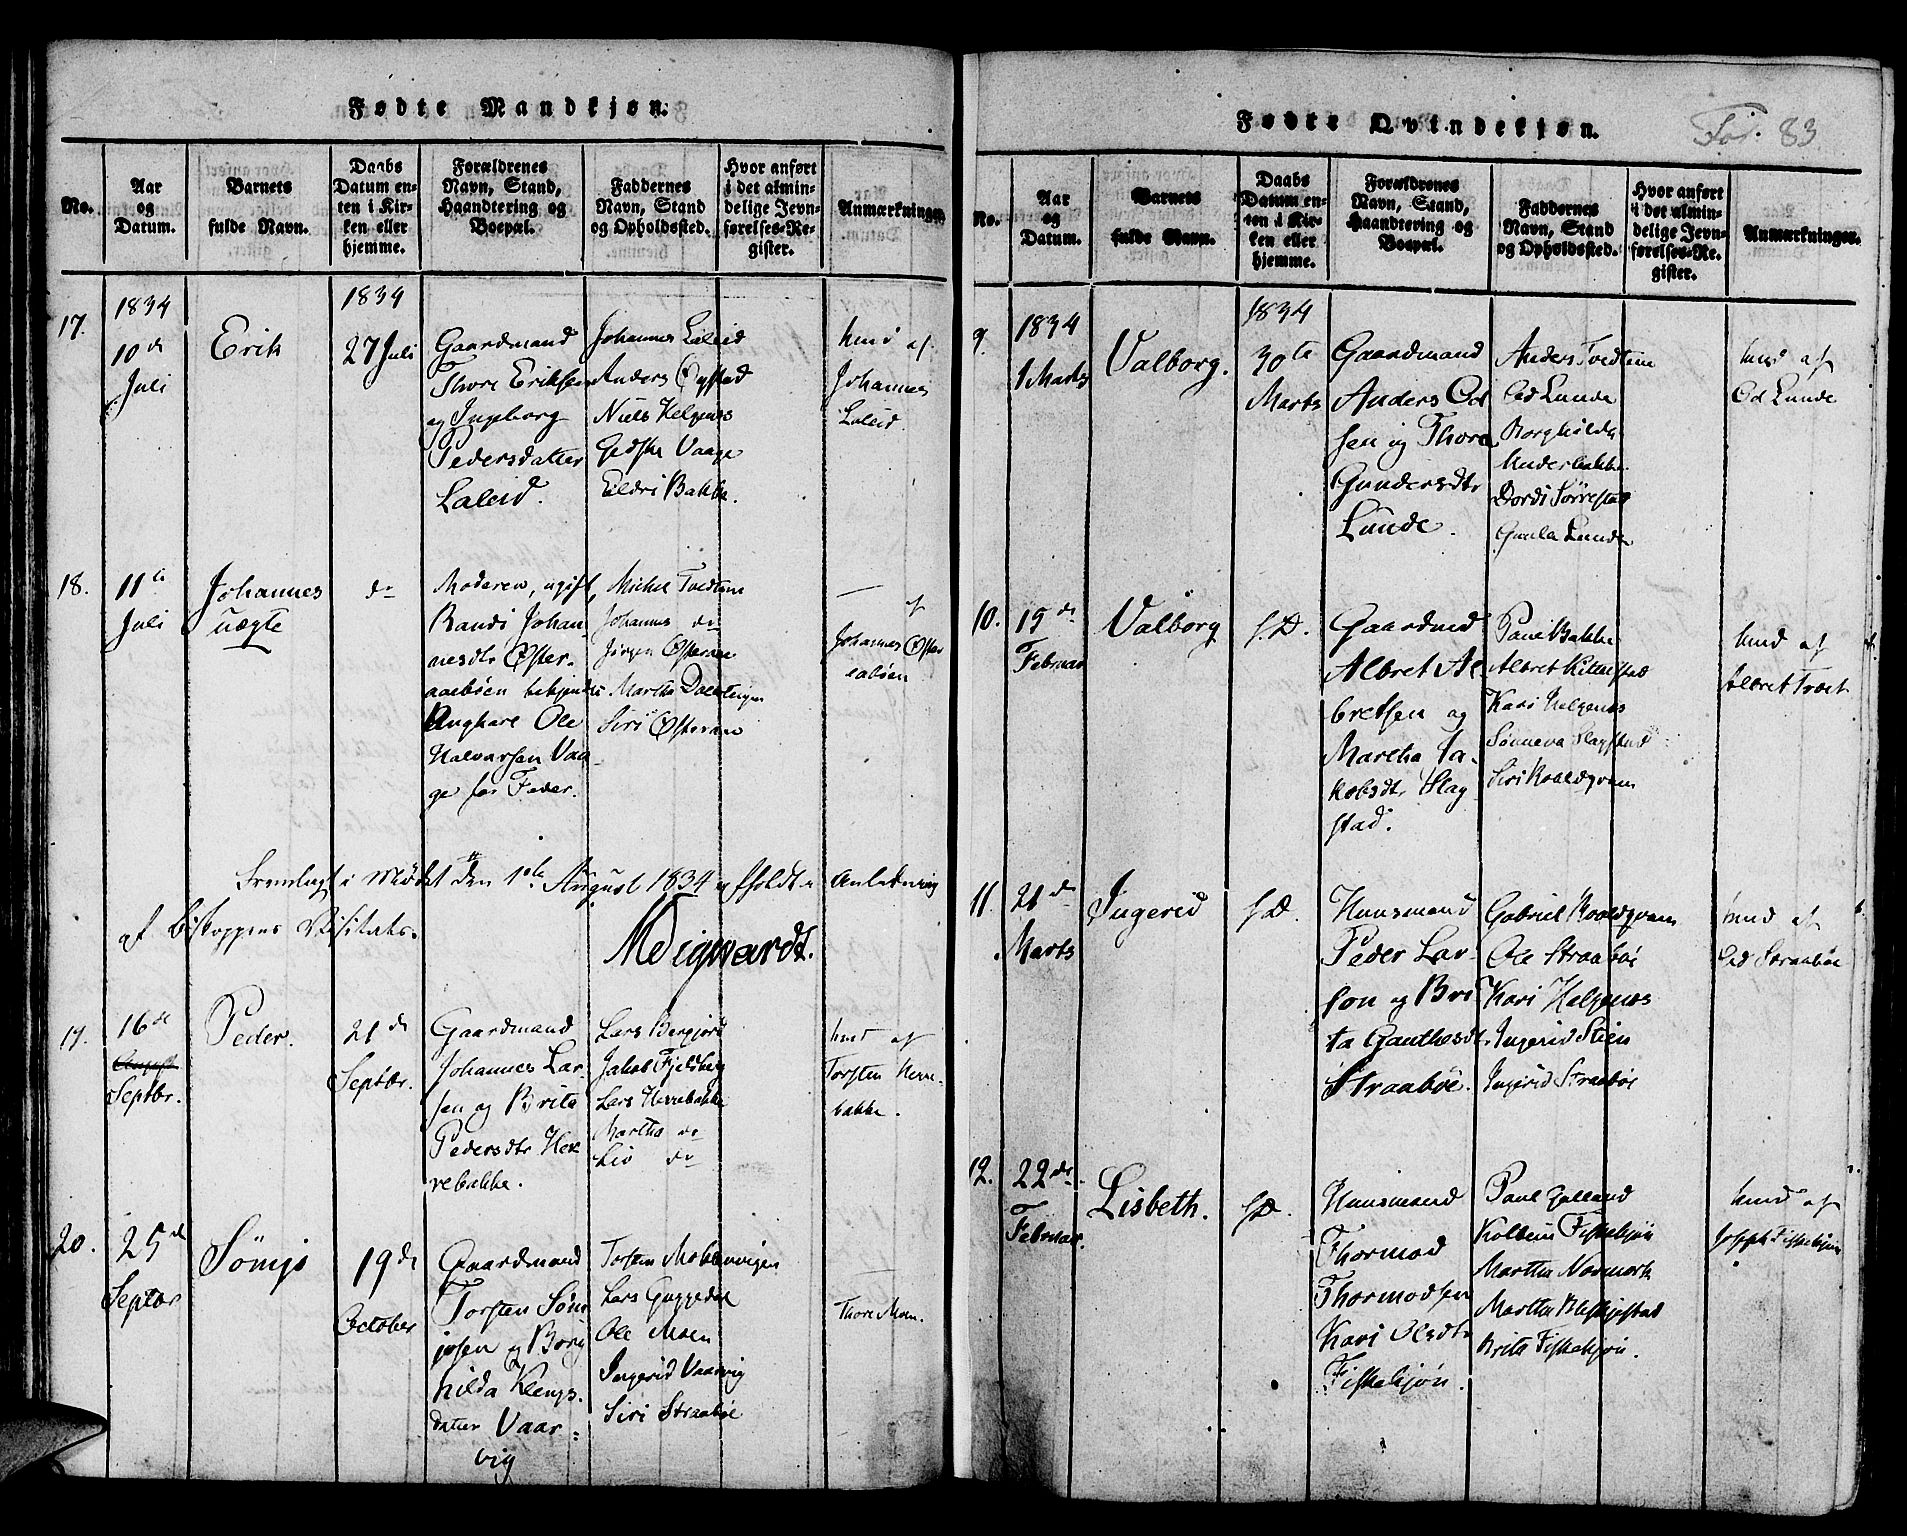 Fødte Mandkjøn.
No.
Aar
og
Datum.
Barnets
fulde Navn.
Daabs
Datum en-
ten i Kir-
ken eller
hjemme.
Forældrenes
Navn, Stand,
Haandtering og
Boepæl.
Faddernes
Navn, Stand
og Opholdssted.
Hvor anført
i det almin-
delige Jevn-
førelses-Re-
gister.
Anmærkninger.
17.
1834
10de
Juli
Erik
1834
27 Juli
Gaardmand
Thore Eriksen
og Ingeborg
Pedersdatter
Laleid.
Johannes Laleid
Anders Øystad
Niels Helgenes
Gidske Vaage
Eildri Bakke.
hmd af
Johannes
Laleid.
18.
11te
Juli
Johannes
uægte
do
Moderen, ugift,
Randi Johan-
nesdtr Øster-
aaebøen
Ole
Halvorsen Vaa-
ge for Fader.
Michel Tvedten
Johannes do
Jørgen Østeraae
Martha
Siri Østeraae
af
Johannes Øster
eabøen
Fremlagt i Mødet den 1ste August 1834 afholdt i Anledning
af Bistoppens Visitats.
19.
16de
Septbr.
Peder.
21de
Septbr.
Gaardmand
Johannes Lar-
sen og Brita
Pedersdtr Her
rebakke.
Lars Bergjord
Jakob Fjeldberg
Lars Herrebakke
Martha do
Liv do
hmd af
Torsten Herre-
bakke.
20.
25de
Septbr
19de
October
Gaardmand
Torsten Søm
josen og Borg
hilda Klengs-
datter Vaar-
vig
Torsten
Lars Guggedal
Ole Moen
Ingerid Vaarvig
Siri Straabøe
Thore Moen.
Fødte Qvindekjøn.
Fol. 83
No.
Aar
og
Datum.
Barnets
fulde Navn.
Daabs
Datum en-
ten i Kir-
ken eller
hjemme.
Forældrenes
Navn, Stand,
Haandtering og
Boepæl.
Faddernes
Navn, Stand
og Opholdssted.
Hvor anført
i det almin-
delige Jevn-
førelses-Re-
gister.
Anmærkninger.
9.
1834
1 Marts
Valborg.
1834
30te
Marts
Gaardmand
Anders Od
sen og Thore
Gundersdtr
Lunde.
Anders Tvedten
Od Lunde
Borghilda
Anderbakke
Dordi Sørrestad
Gunla Lunde
hmd af
Od Lunde
10.
15de
Februar
Valborg
s.D.
Gaardmd
Albret Al
bretsen og
Martha Ja-
kobsdtr Slag
stad.
Paul Bakke
Albret
Kari Helgenes
Sønneva Slagstad
Siri Roaldqvam
hmd af
Albret
11.
21de
Marts
Ingerid
s.D.
Huusmand
Peder Lar-
son og Bri
ta Gauthesdt.
Straabøe.
Gabriel Roaldqvam
Ole Straabøe
Kari Helgenes
Ingerid Stien
Ingerid Straabøe
hmd af
Od Straabøe
12.
22de
Februar.
Lisbeth.
s.D.
Huusmand
Thormod
Thormodsen
Kari Olsdtr
Fiskekjøn.
Paul
Kolbein Fiskekjøn
Martha Normark
Martha
Brita Fiskekjøn.
hmd af
Joseph Fiskekjøn